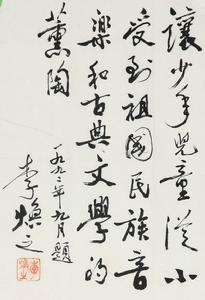 讓少年兒童從小
受到祖國民族音
樂和古典文學的
薰陶
一九九二年九月題
李煥之